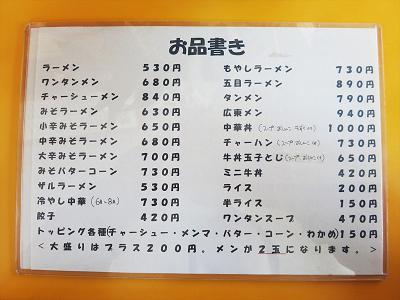 お品書き
ラーメン 530円
ワンタンメン 680円
チャーシューメン 840円
みそラーメン 630円
小辛みそラーメン 650円
中辛みそラーメン 680円
大辛みそラーメン 700円
みそバターコーン 730円
ザルラーメン 530円
冷やし中華(6A〜8A) 730円
餃子 420円
もやしラーメン 730円
五目ラーメン 890円
タンメン 790円
広東メン 940円
中華丼 1000円
チャーハン 730円
牛丼玉子とじ 650円
ミニ牛丼 420円
ライス 200円
半ライス 150円
ワンタンスープ 470円
トッピング各種(チャーシュー・メンマ・バター・コーン・わかめ)150円
<大盛りはプラス200円。メンが2玉になります。>